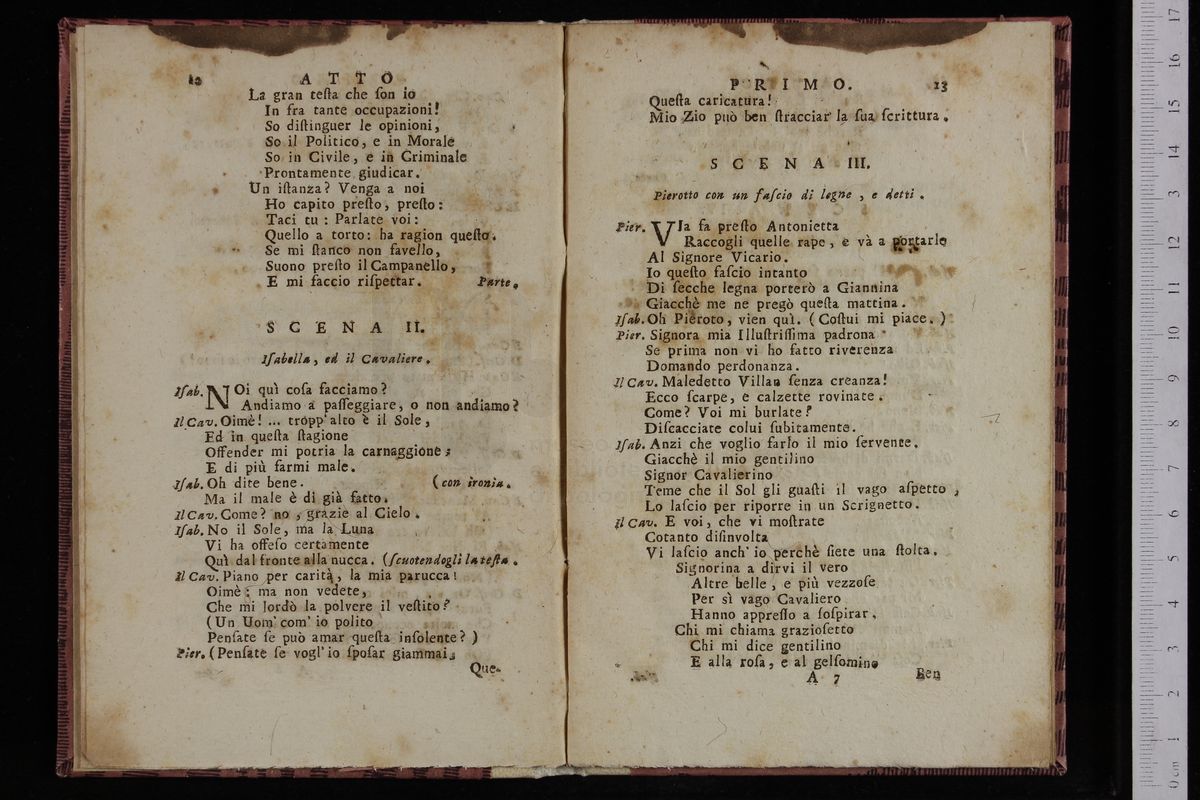 12
A T T O
La gran teſta che ſon io
In fra tante occupazioni!
So diſtinguer le opinioni,
So il Politico, e in Morale
So in Civile, e in Criminale
Prontamente giudicar.
Un iſtanza? Venga a noi
Ho capito preſto, preſto:
Taci tu : Parlate voi:
Quello a torto: ha ragion queſto.
Se mi ſtanco non favello,
Suono preſto il Campanello,
E mi faccio riſpettar. Parte.
S C E N A II.
Iſabella, ed il Cavaliere.
Iſab. NOi quì coſa facciamo?
Andiamo a paſſeggiare, o non andiamo?
Il Cav. Oimè! ... tropp' alto è il Sole,
Ed in queſta ſtagione
Offender mi potria la carnaggione;
E di più farmi male.
Iſab. Oh dite bene. (con ironia.
Ma il male è di già fatto.
Il Cav. Come? no, grazie al Cielo.
Iſab. No il Sole, ma la Luna
Vi ha offeſo certamente
Quì dal fronte alla nucca. (ſcuotendogli la teſta.
Il Cav. Piano per carità, la mia parucca!
Oimè: ma non vedete,
Che mi lordò la polvere il veſtito?
(Un Uom' com' io polito
Penſate ſe può amar queſta inſolente? )
Pier. (Penſate ſe vogl' io ſpoſar giammai
Que-
P R I M O.
13
Queſta caricatura!
Mio Zio può ben ſtracciar la ſua ſcrittura.
S C E N A III.
Pierotto con un faſcio di legne, e detti.
Pier. VIa fa preſto Antonietta
Raccogli quelle rape, e và a portarle
Al Signore Vicario.
Io queſto faſcio intanto
Di ſecche legna porterò a Giannina
Giacchè me ne pregò queſta mattina.
Iſab. Oh Pieroto, vien quì. (Coſtui mi piace. )
Pier. Signora mia Illuſtriſſima padrona
Se prima non vi ho fatto riverenza
Domando perdonanza.
Il Cav. Maledetto Villan ſenza creanza!
Ecco ſcarpe, e calzette rovinate.
Come? Voi mi burlate?
Diſcacciate colui ſubitamente.
Iſab. Anzi che voglio farlo il mio ſervente.
Giacchè il mio gentilino
Signor Cavalierino
Teme che il Sol gli guaſti il vago aſpetto,
Lo laſcio per riporre in un Scrignetto.
Il Cav. E voi, che vi moſtrate
Cotanto diſinvolta
Vi laſcio anch' io perchè ſiete una ſtolta.
Signorina a dirvi il vero
Altre belle, e più vezzoſe
Per sì vago Cavaliero
Hanno appreſſo a ſoſpirar.
Chi mi chiama grazioſetto
Chi mi dice gentilino
E alla roſa, e al gelſomino
A 7
Ben